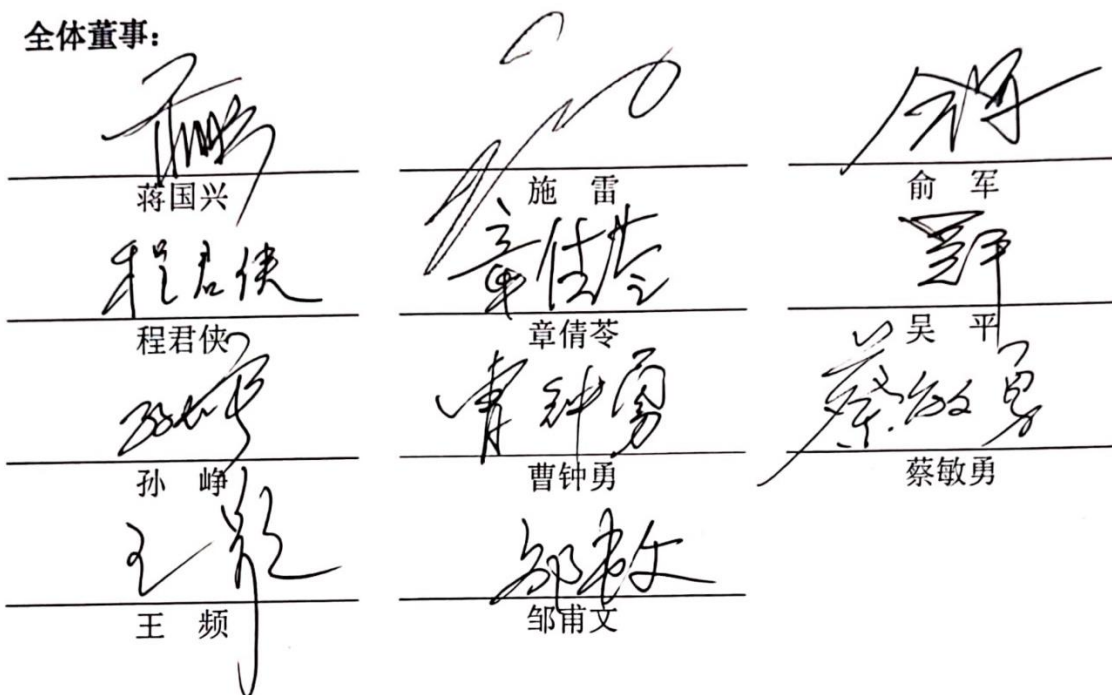 全体董事：
蒋国兴 施 雷 俞 军
程君侠 章倩苓 吴 平
孙 峥 曹钟勇 蔡敏勇
王 频 邹甫文